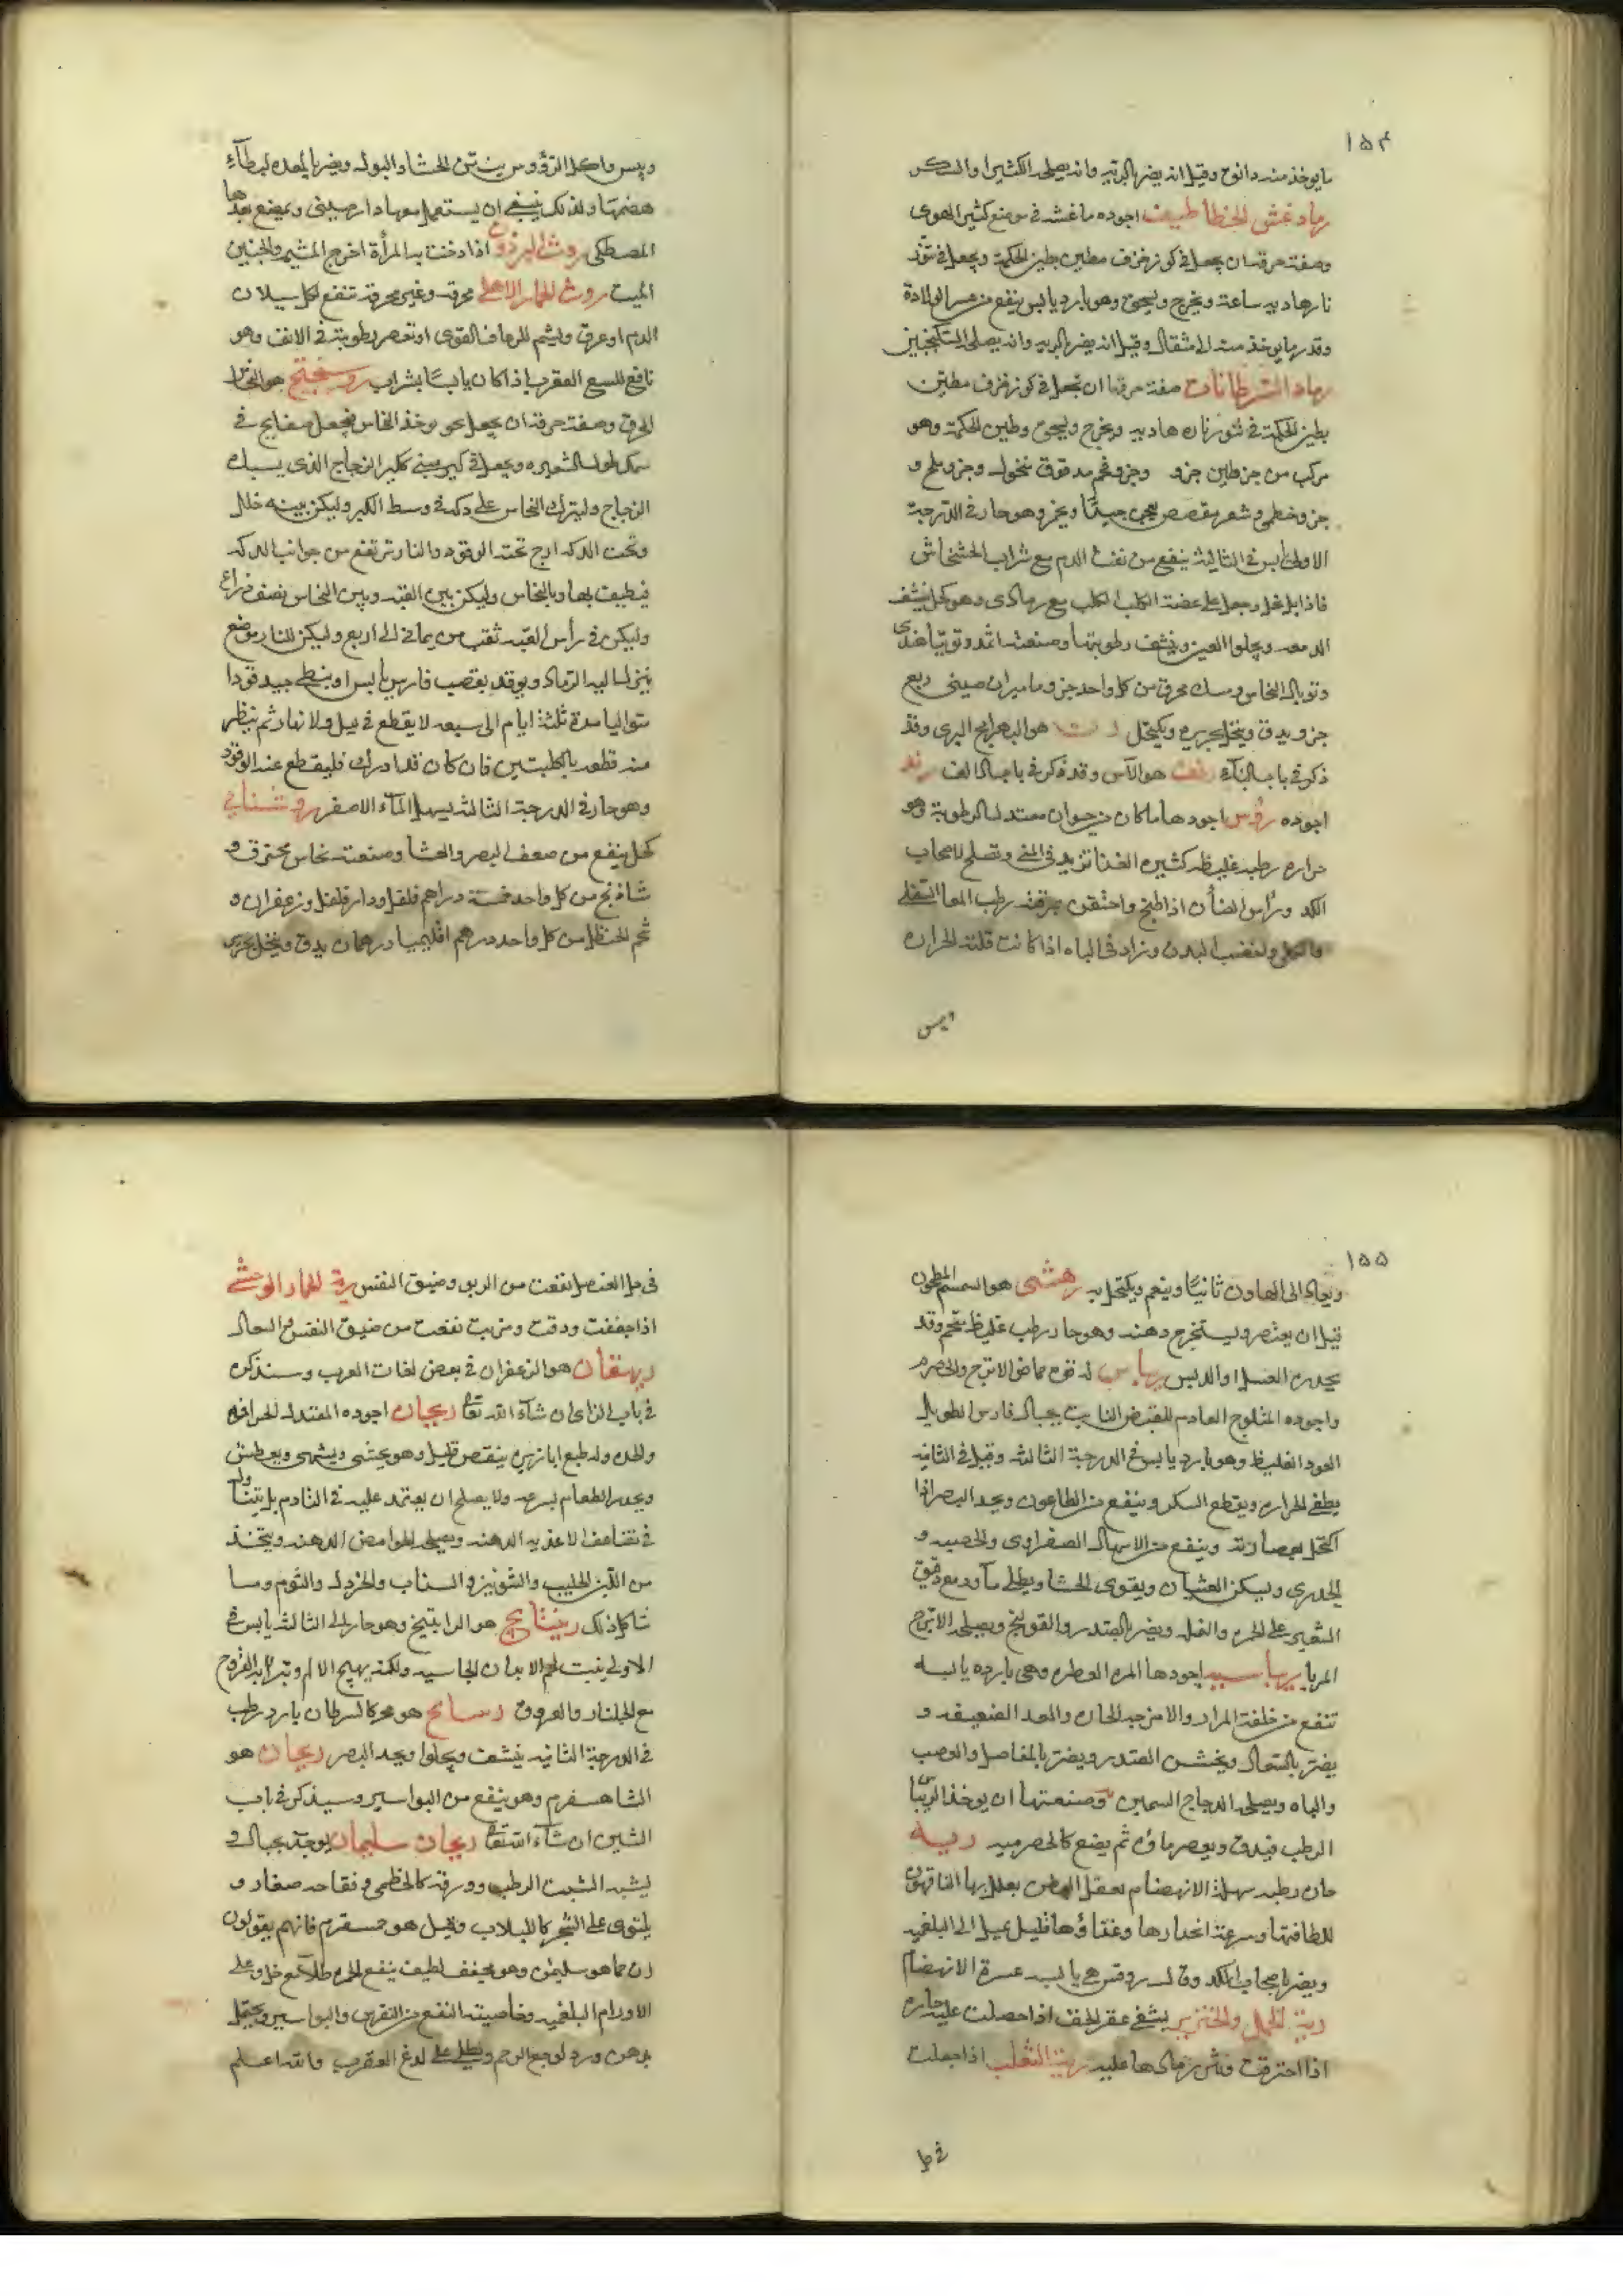 ١٥٤
ما يوخذ منه دانق وقيل انه يضر بالرية وانه يصلحه الكثيرا والسكر
رماد عش الخطاطيف اجوده ما عشه في موضع كثير الهوى
وصفة حرقه ان يجعل في كوز خزف مطين بطين الحكمة ويجعل في تنور
نار هادية ساعة ويخرج ويسحق وهو بارد يابس ينفع من عسر الولادة
وقدر ما يوخذ منه الى مثقال وقيل انه يضر بالرية وانه يصلحه السكنجبين
رماد السرطانات صفة حرقها ان تجعل في كوز خزف مطين
بطين الحكمة في تنور ناره هادية ويخرج ويسحق وطين الحكمة وهو
مركب من جز طين جزو وجزو فحم مدقوق منخول وجزو ملح و
جز وخطمى وشعر مقصص يعجن جيدًا ويخمر وهو حار في الدرجة
الاولى يابس في الثالثة ينفع من نفث الدم مع شراب الخشخاش
فاذا بل بخل وجعل على عضة الكلب الكلب مع رماد وهو كحل ينشف
الدمعه ويجلوا العين وينشف رطوبتها وصنعته اثمد وتوتيا هندى
وتوبال النحاس ومسك محرق من كل واحد جزو ماميران صينى ربع
جزو يدق وينخل بحريره ويكتحل هو البهرامج البرى وقد
ذكر في باب البآء هو الآس وقد ذكر في باب الالف رند
اجوده رؤس اجودها ما كان من حيوان معتدل الرطوبة وهو
حاره رطبه غليظه كثيرة الغذا تزيد في المنى وتصلح لاصحاب
الكد وراس الضأن اذا طبخ واحتقن بمرقته رطب المعا السفلى
والكلى واخصب البدن وزاد في الباه اذا كانت قلته الحراره
ويبس
ويبس واكل الرؤوس ينتن الجشا والبول ويضر بالمعده لابطآء
هضمها ولذلك ينبغي ان يستعمل معها دارصينى ويمضغ بعدها
المصطكى روث البرذون اذا دخنت به المرأة اخرج المشيمه والجنين
الميت روث الحمار الاهلى محرقه وغير محرقة تنفع لكل سيلان
الدم او عرق ويشم للرعاف القوى او تعصر رطوبته في الانف وهو
نافع للسع العقرب اذا كان يابسًا بشراب روسختج هو النحاس
المحرق وصفة حرقه ان يوخذ النحاس فيجعل صفايح في
سمك طول الشعيره ويجعل في كير مبنى ككير الزجاج الذى يسبك
الزجاج وليترك النحاس على دكه في وسط الكير وليكن بينه خلال
وتحت الدكه ازج تحته الوقود والنار ترتفع من جوانب الدكه
فيطيف بها وبالنحاس وليكن بين القبه وبين النحاس نصف ذراع
وليكن في رأس القبه ثقب من ثمانى الى اربع وليكن للنار موضع
ينزل اليه الرماد ويوقد بقصب فارسى يابس او بشظى جيد وقودا
متواليا مدة ثلثة ايام الى سبعه لا يقطع في ليل ولا نهار ثم ينظر
منه قطعه بالكلبتين فان كان قد ادرك فليقطع عنه الوقود
وهو حار في الدرجة الثالثة يسهل المآء الاصفر روشنايى
كحل ينفع من ضعف البصر والعشا وصنعته نحاس محترق و
شاذنج من كل واحد خمسة دراهم فلفل ودار فلفل وزعفران و
شحم الحنظل من كل واحد درهم اقليميا درهمان يدق وينخل بحريره
١٥٥
ويعاد الى الهاون ثانيًا وينعم ويكتحل به رهشى هو السمسم المطحون
قبل ان يعتصر ويستخرج دهنه وهو حار رطب غليظ يتخم وقد
يحدره العسل او الدبس ريباس له قوة حماض الاترج والحصرم
واجوده المثلوج العادم للقبض النابت بجبال فارس الطويل
العود الغليظ وهو بارد يابس في الدرجة الثالثة وقيل في الثانيه
يطفى الحراره ويقطع السكر وينفع من الطاعون ويحد البصر اذا
اكتحل بعصارته وينفع من الاسهال الصفراوى والحصبه و
الجدرى ويسكن الغثيان ويقوى الحشا ويطلى مآوه مع دقيق
الشعير على الحمره والنمله ويضر بالصدر والقولنج ويصلحه الاترج
المربا ريباسيه اجودها المره العطره وهى بارده يابسه
تنفع من خلفة المرار والامزجه الحاره والمعد الضعيفه و
يضر بالسعال ويخشن الصدر ويضر بالمفاصل والعصب
والباه ويصلحه الدجاج السمين وصنعتها ان يوخذ الريباس
الرطب فيدق ويعصر ماؤه ثم يضع كالحصرميه ريه
حاره رطبه سهلة الانهضام يعقل البطن يعلل بها الناقهون
للطافتها وسرعة انحدارها وغذاؤها قليل يميل الى البلغميه
ويضر باصحاب الكد وقال روفس هى يابسه عسرة الانهضام
رية الحمل والخنزير يشفى عقر الخف اذا حصلت عليه حاره
اذا احترقت ونثر رمادها عليه رية الثعلب اذا جعلت
في خل
في خل العنصل نفعت من الربو وضيق النفس رية الحمار الوحشى
اذا جففت ودقت وشربت نفعت من ضيق النفس والسعال
ريهقان هو الزعفران في بعض لغات العرب وسنذكره
في باب الزاى ان شآء الله تعالى ريحان اجوده المعتدل الحرافه
والحده وله طبع ابازيره ينقص قليل وهو يجشى ويشهى ويعطش
ويحدر الطعام بسرعه ولا يصلح ان يعتمد عليه في التادم بل يتناول
في تضاعف الاغذيه الدهنه ويصلحه الحوامض الدهنه ويتخذ
من اللبن الحليب والشونيز والسذاب والخردل والثوم وما
شاكل ذلك رينتانج هو الراتينج وهو حار الى الثالثة يابس في
الاولى ينبت لحم الابدان الجاسيه ولكنه يهيج الالم وتبرا به القروح
مع الجلنار والعروق هو محر كالسرطان بارد رطب
في الدرجة الثانيه ينشف ويجلوا ويحد البصر ريحان هو
الشاهسفرم وهو ينفع من البواسير وسيذكر في باب
الشين ان شآء الله تعالى ريحان سليمان يوجد بجبال و
يشبه الشبت الرطب وورقه كالخطمى وتفاحه صغار و
يلتوى على الشجر كاللبلاب وقيل هو جمسفرم فانهم يقولون
ان جما هو سليمن وهو مجفف لطيف ينفع الحمره طلآء مع خل وعلى
الاورام البلغميه وخاصيته النفع من النقرس والبواسير ويحتمل
بدهن ورد لوجع الرحم ويطلى على لدغ العقرب والله اعلم